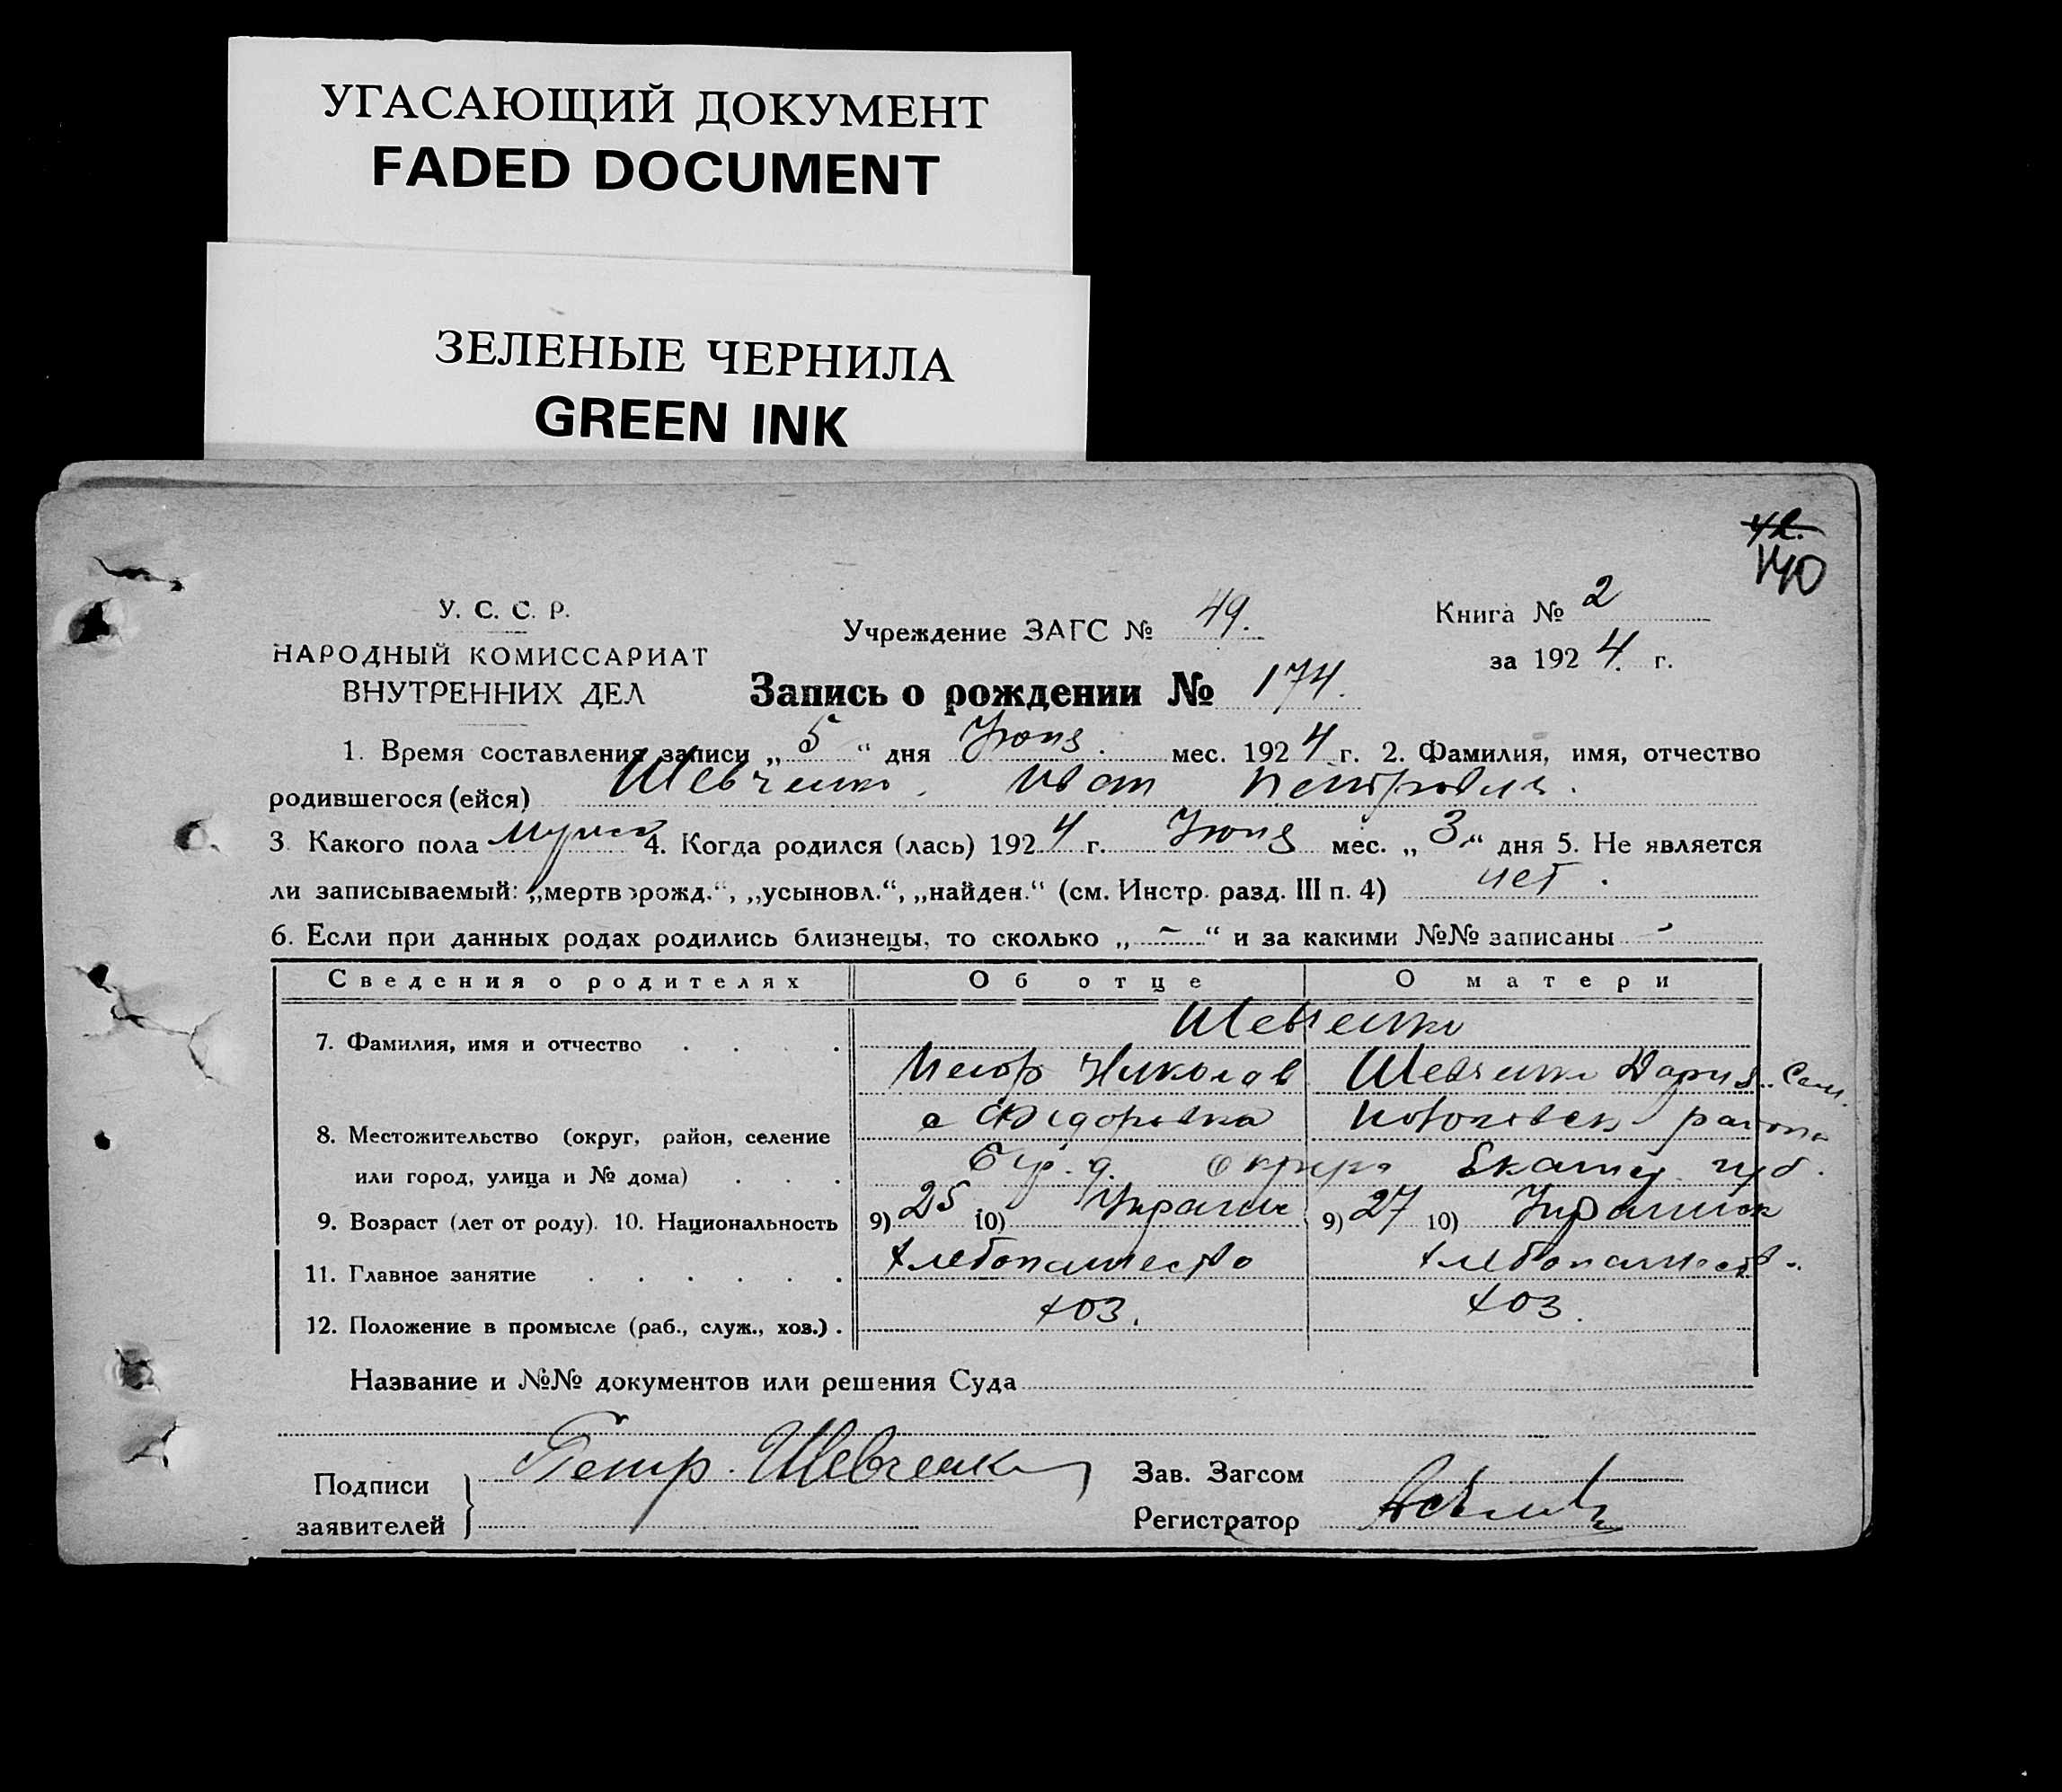 УГАСАЮЩИЙ ДОКУМЕНТ
FADED DOCUMENT
ЗЕЛЕНЫЕ ЧЕРНИЛА
GREEN INK
42.
140
У. С. С. Р.
НАРОДНЫЙ КОМИССАРИАТ
ВНУТРЕННИХ ДЕЛ
Учреждение ЗАГС № 49.
Книга № 2
за 1924. г.
Запись о рождении № 174.
1. Время составления записи „ 5 “ дня Июня. мес. 1924 г. 2. Фамилия, имя, отчество
родившегося (ейся) Шевченко. Иван Петрович.
3. Какого пола мужск 4. Когда родился (лась) 1924 г. Июня мес. „ 3 “ дня 5. Не является
ли записываемый: „мертворожд.“, „усыновл.“, „найден.“ (см. Инстр. разд. III п. 4) нет.
6. Если при данных родах родились близнецы, то сколько „ — “ и за какими №№ записаны -
Сведения о родителях Об отце О матери
7. Фамилия, имя и отчество Шевченко
Петр Николаев Шевченко Дария Сам.
8. Местожительство (округ, район, селение с Федоровка района
или город, улица и № дома) округа Екатер. губ.
9. Возраст (лет от роду). 10. Национальность 9) 25 10) Украин 9) 27 10) Украинск
11. Главное занятие Хлебопашество хлебопашеств.
12. Положение в промысле (раб., служ., хоз.) хоз. хоз.
Название и №№ документов или решения Суда
Подписи заявителей Петр. Шевченко
Зав. Загсом
Регистратор